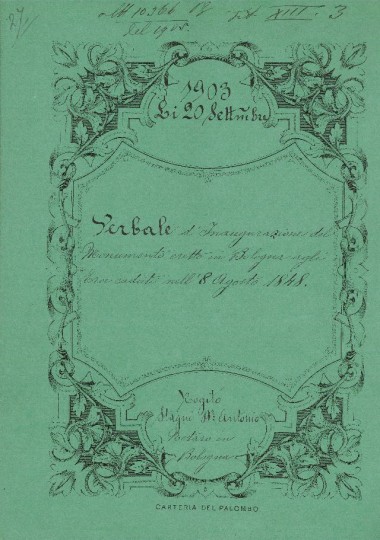 10366
XIII. 3
del 1905.
1903
Li 20 Settembre
Verbale d'Inaugurazione del
Monumento eretto in Bologna agli
Eroi caduti nell' 8 Agosto 1848.
Rogito
Stagni M. Antonio
Notaro in
Bologna
CARTERIA DEL PALOMBO